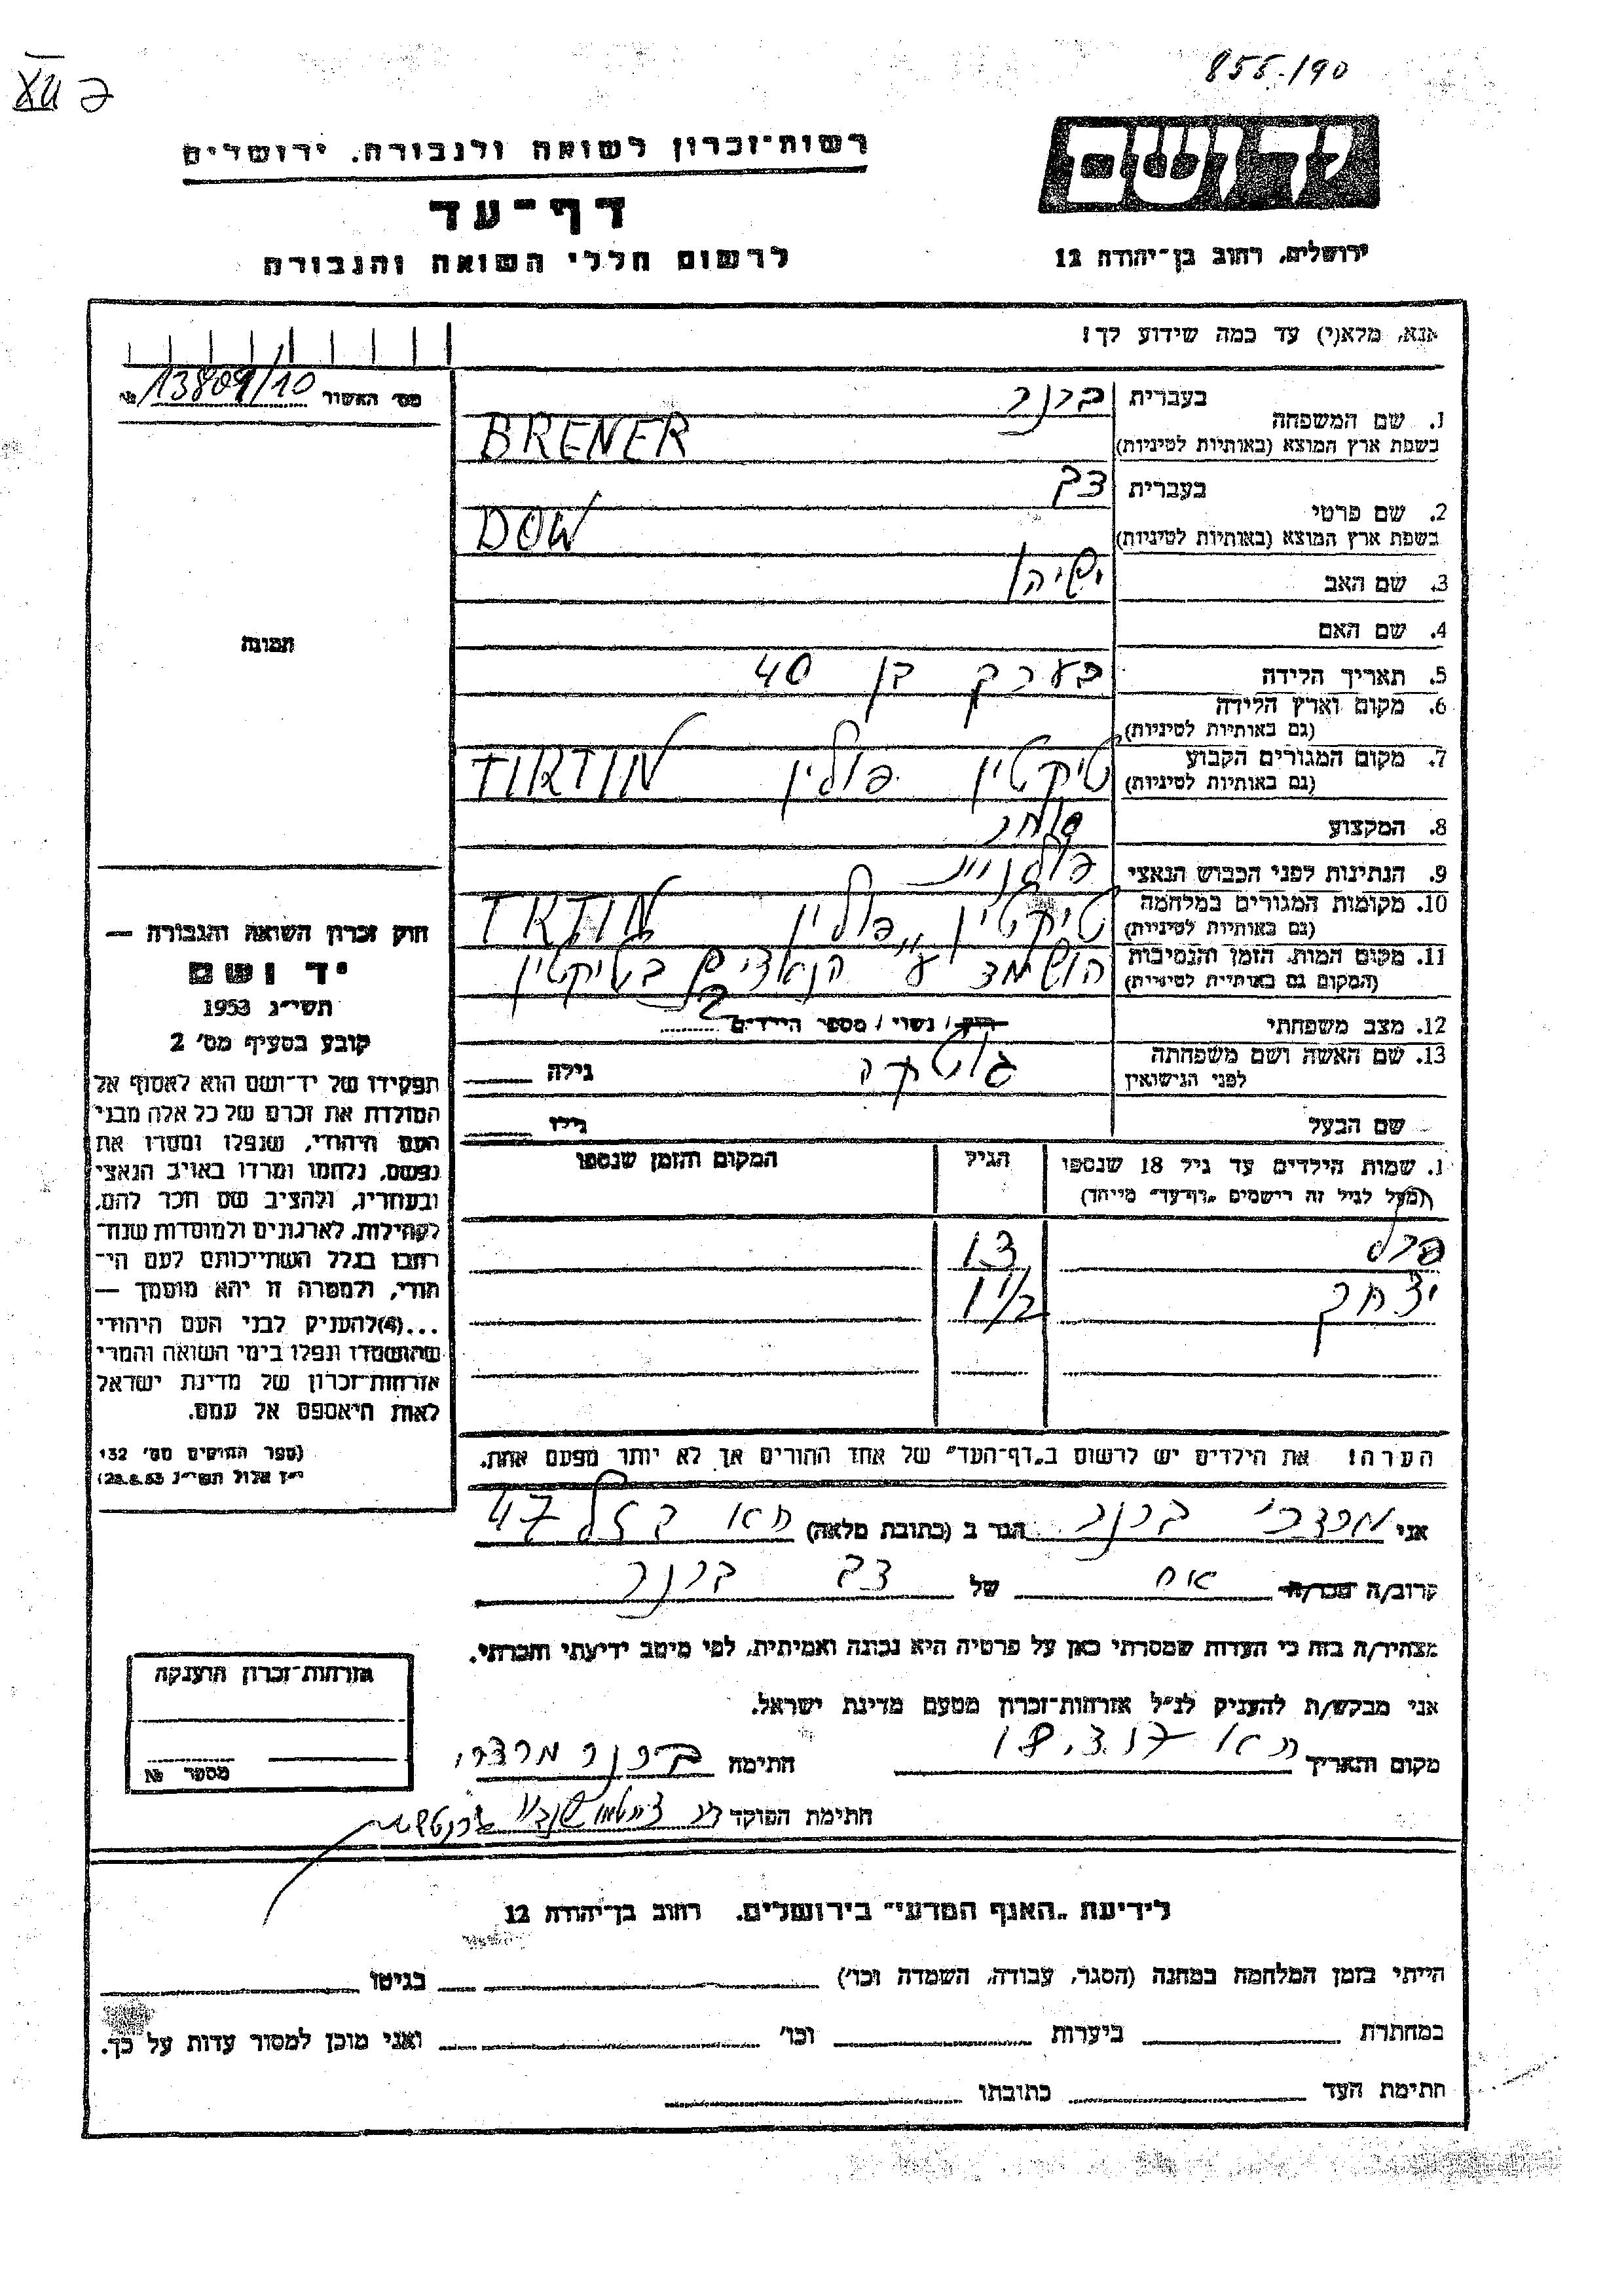 855/190
XII כ
רשות־זכרון לשואה ולגבורה. ירושלים
דף־עד
לרשום חללי השואה והגבורה
יד ושם
ירושלים, רחוב בן־יהודה 12
אנא, מלא(י) עד כמה שידוע לך!
מס׳ האשור 13809/10 №
1. שם המשפחה
בעברית ברנר
בשפת ארץ המוצא (באותיות לטיניות) BRENER
2. שם פרטי
בעברית דב
בשפת ארץ המוצא (באותיות לטיניות) DOW
3. שם האב ישיהו
4. שם האם
5. תאריך הלידה בערך בן 40
6. מקום וארץ הלידה
(גם באותיות לטיניות)
7. מקום המגורים הקבוע טיקטין פולין TIKTIN
(גם באותיות לטיניות)
8. המקצוע סוחר
9. הנתינות לפני הכבוש הנאצי פולנית
10. מקומות המגורים במלחמה טיקטין פולין TKTIN
(גם באותיות לטיניות)
11. מקום המות, הזמן והנסיבות הושמד ע״י הנאצים בטיקטין
(המקום גם באותיות לטיניות)
12. מצב משפחתי רוק / נשוי / מספר הילדים 2
13. שם האשה ושם משפחתה
לפני הנישואין גילה
שם הבעל גילו
1. שמות הילדים עד גיל 18 שנספו הגיל המקום והזמן שנספו
(מעל לגיל זה רישמים „דף־עד״ מיוחד)
פרל 13
יצחק 1 1/2
הערה! את הילדים יש לרשום ב„דף־העד״ של אחד ההורים אך לא יותר מפעם אחת.
תמונה
חוק זכרון השואה והגבורה —
יד ושם
תשי״ג 1953
קובע בסעיף מס׳ 2
תפקידו של יד־ושם הוא לאסוף אל
המולדת את זכרם של כל אלה מבני
העם היהודי, שנפלו ומסרו את
נפשם, נלחמו ומרדו באויב הנאצי
ובעוזריו, ולהציב שם וזכר להם,
לקהילות, לארגונים ולמוסדות שנח־
רבו בגלל השתייכותם לעם הי־
הודי, ולמטרה זו יהא מוסמך —
...(4) להעניק לבני העם היהודי
שהושמדו ונפלו בימי השואה והמרי
אזרחות־זכרון של מדינת ישראל
לאות היאספם אל עמם.
(ספר החוקים מס׳ 132
י״ז אלול תשי״ג 28.8.53)
אני מרדכי ברנר הגר ב (כתובת מלאה) תא ברזל 47
קרוב/ה מכר/ה אח של דב ברנר
מצהיר/ה בזה כי העדות שמסרתי כאן על פרטיה היא נכונה ואמיתית, לפי מיטב ידיעתי והכרתי.
אני מבקש/ת להעניק לנ״ל אזרחות־זכרון מטעם מדינת ישראל.
מקום והתאריך תא 17.3. חתימה ברנר מרדכי
חתימת הפוקד
אזרחות־זכרון הוענקה
מספר №
לידיעת „האגף המדעי״ בירושלים, רחוב בן־יהודה 12
הייתי בזמן המלחמה במחנה (הסגר, עבודה, השמדה וכו׳) בגיטו
במחתרת ביערות וכו׳ ואני מוכן למסור עדות על כך.
חתימת העד כתובתו